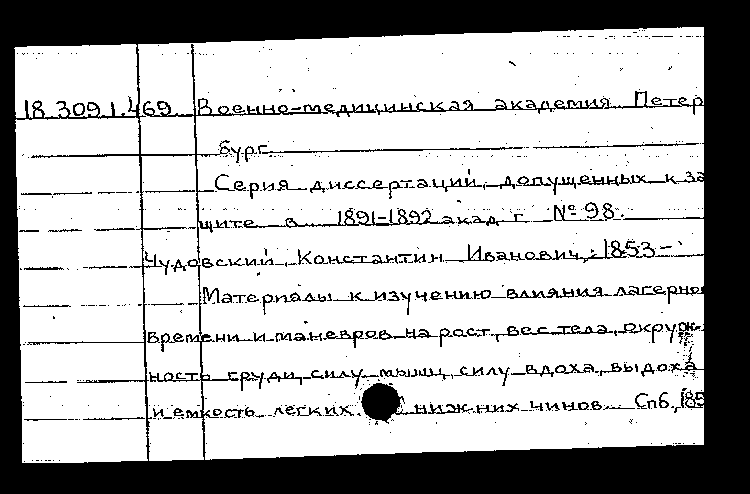 18.309.1.469 Военно-медицинская академия. Петер
бург.
Серия диссертаций, допущенных к за
щите в 1891-1892 акад. г. № 98.
Чудовский, Константин Иванович, 1853-
Материалы к изучению влияния лагерно
времени и маневров на рост, вес тела, окруж-
ность груди, силу мышц, силу вдоха, выдоха
и емкость легких нижних чинов. Спб.,